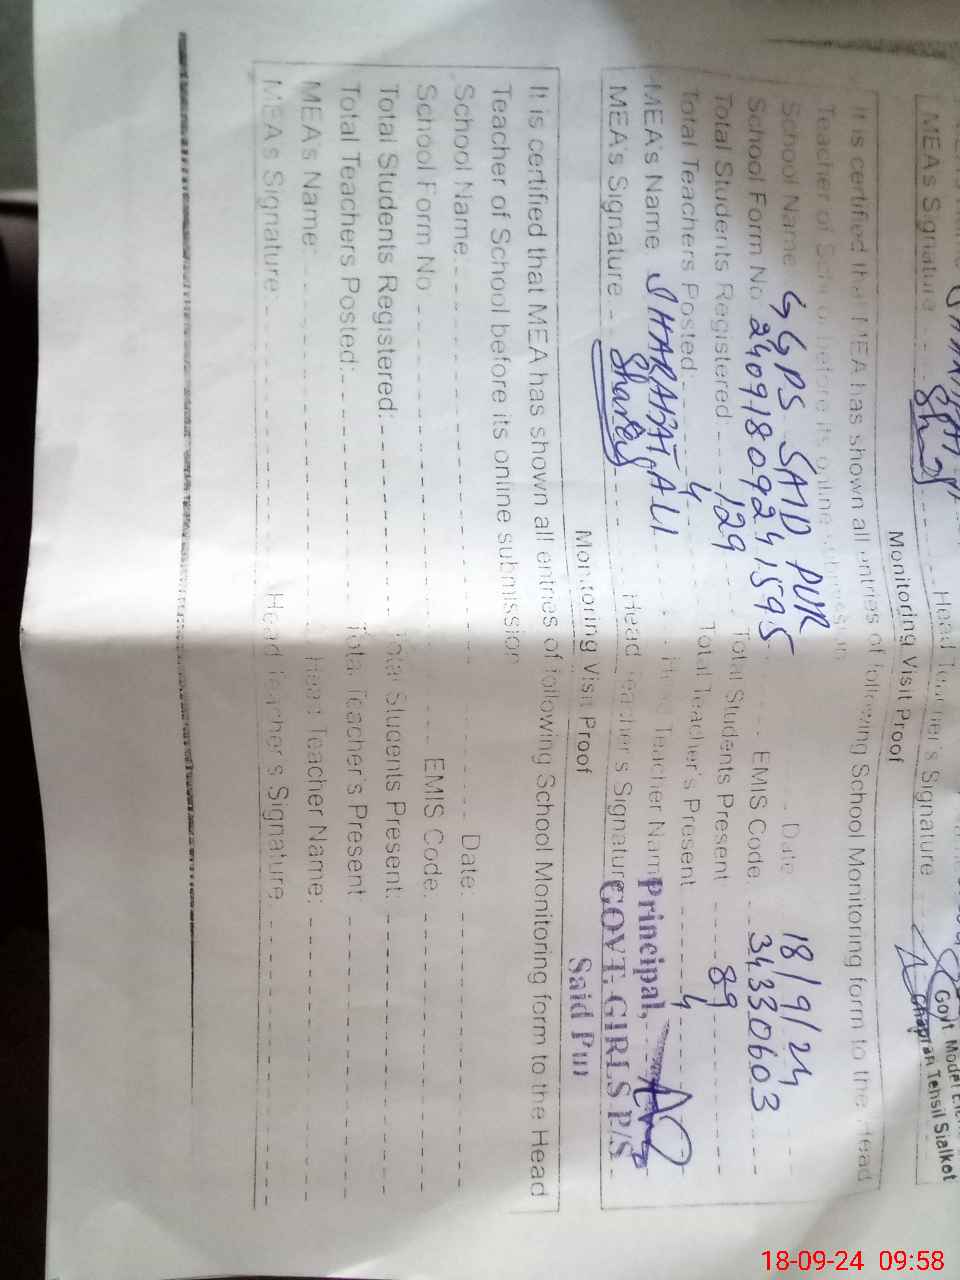 MEA's Signature Head Teacher's Signature
Govt Model
Chaprar Tehsil Sialkot
Monitoring Visit Proof
It is certified that MEA has shown all entries of following School Monitoring form to the Head
Teacher of School before its online submission
School Name GGPS SAID PUR Date 18/9/24
School Form No. 24091809241595 EMIS Code. 34330603
Total Students Registered: 129 Total Students Present 89
Total Teachers Posted: 4 Total Teacher's Present 4
MEA's Name SHARAFAT ALI Head Teacher Name
MEA's Signature Head Teacher's Signature
Principal,
GOVT. GIRLS P/S
Said Pur
Monitoring Visit Proof
It is certified that MEA has shown all entries of following School Monitoring form to the Head
Teacher of School before its online submission
School Name: Date:
School Form No EMIS Code.
Total Students Registered: Total Students Present:
Total Teachers Posted: Total Teacher's Present
MEA's Name: Head Teacher Name:
MEA's Signature: Head Teacher's Signature
18-09-24 09:58